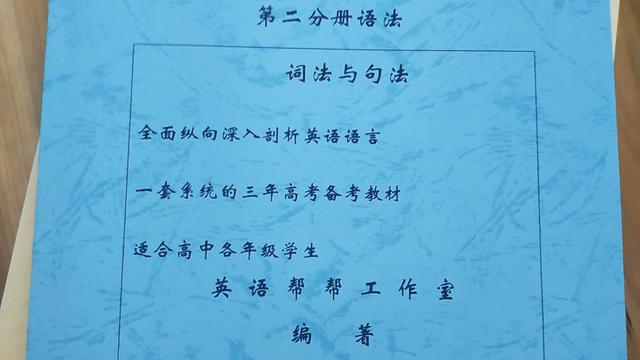 第二分册语法
词法与句法
全面纵向深入剖析英语语言
一套系统的三年高考备考教材
适合高中各年级学生
英语帮帮工作室
编著